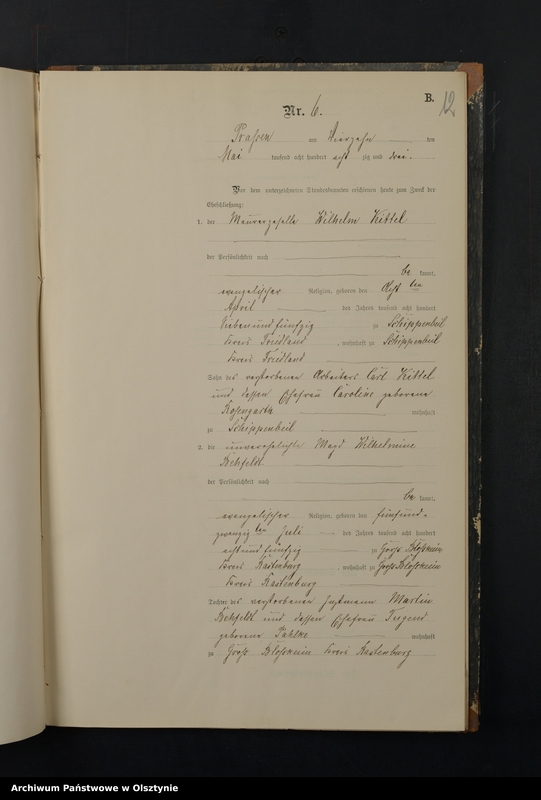 B.
12
Nr. 6.
Prassen am Vierzehn ten
Mai tausend acht hundert acht zig und drei.
Vor dem unterzeichneten Standesbeamten erschienen heute zum Zweck der
Eheschließung:
1. der Maurergeselle Wilhelm Kittel
der Persönlichkeit nach
be kannt,
evangelischer Religion, geboren den Acht ten
April des Jahres tausend acht hundert
sieben und fünfzig zu Schippenbeil
Kreis Friedland, wohnhaft zu Schippenbeil
Kreis Friedland
Sohn des verstorbenen Arbeiters Carl Kittel
und dessen Ehefrau Caroline geborene
Rosengarth wohnhaft
zu Schippenbeil
2. die unverehelichte Magd Wilhelmine
der Persönlichkeit nach
be kannt,
evangelischer Religion, geboren den fünfund-
zwanzig ten Juli des Jahres tausend acht hundert
acht und fünfzig zu Groß
Kreis Rastenburg, wohnhaft zu Groß
Kreis Rastenburg
Tochter des verstorbenen Instmann Martin
und dessen Ehefrau
geborene Pahlke wohnhaft
zu Groß Kreis Rastenburg
Archiwum Państwowe w Olsztynie